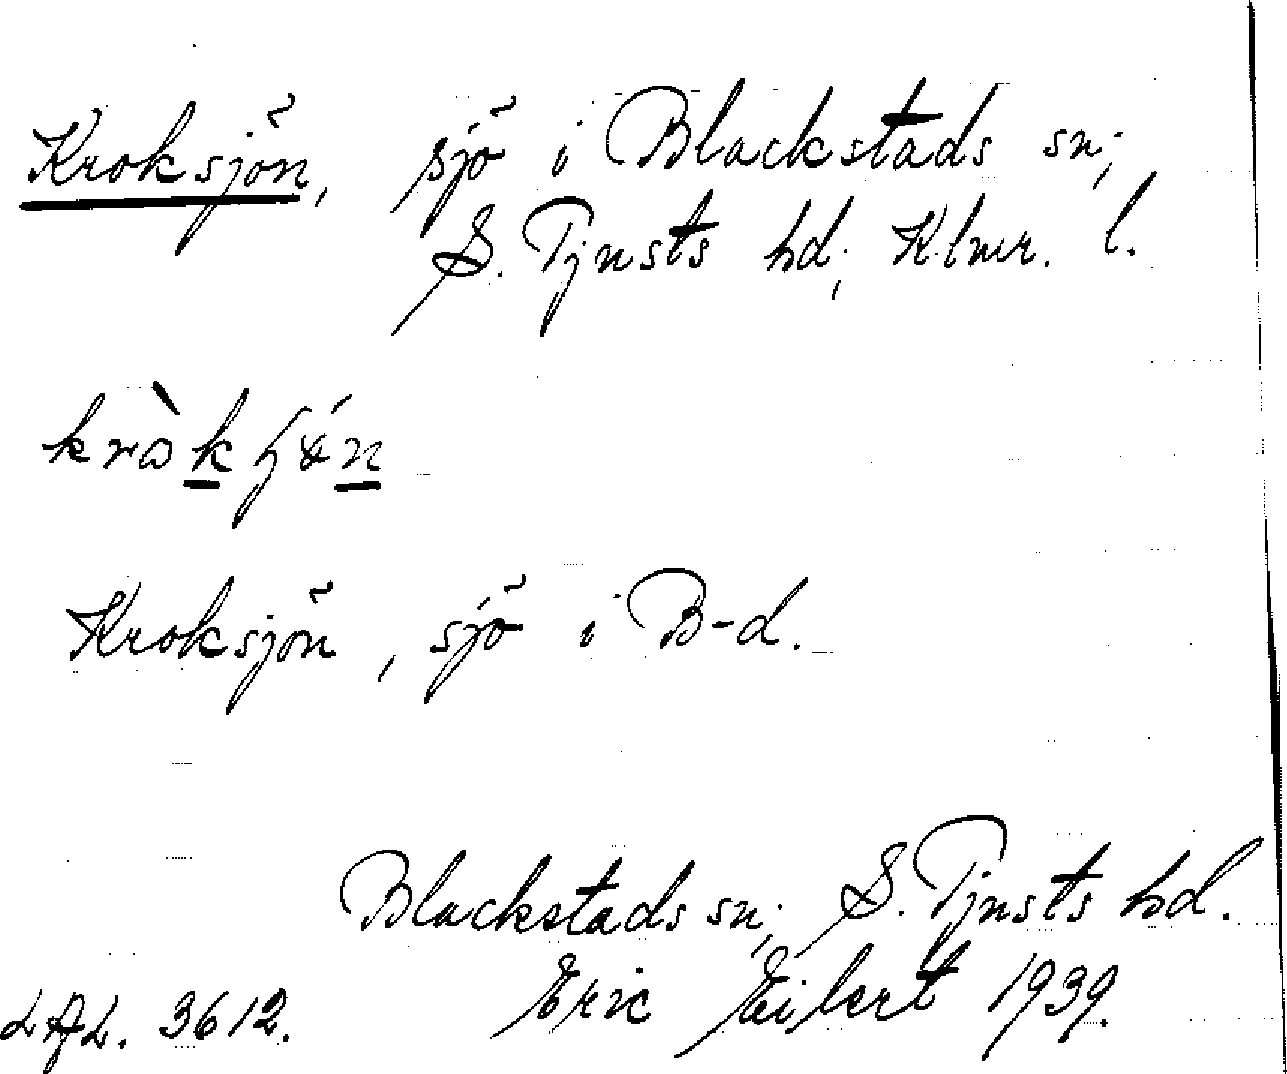 Kroksjön, sjö i Blackstads sn;
S. Tjusts hd; Klmr. l.
Kroksjön, sjö i B-d.
Blackstads sn; S. Tjusts hd.
Eric Eilert 1939.
LAL. 3612.